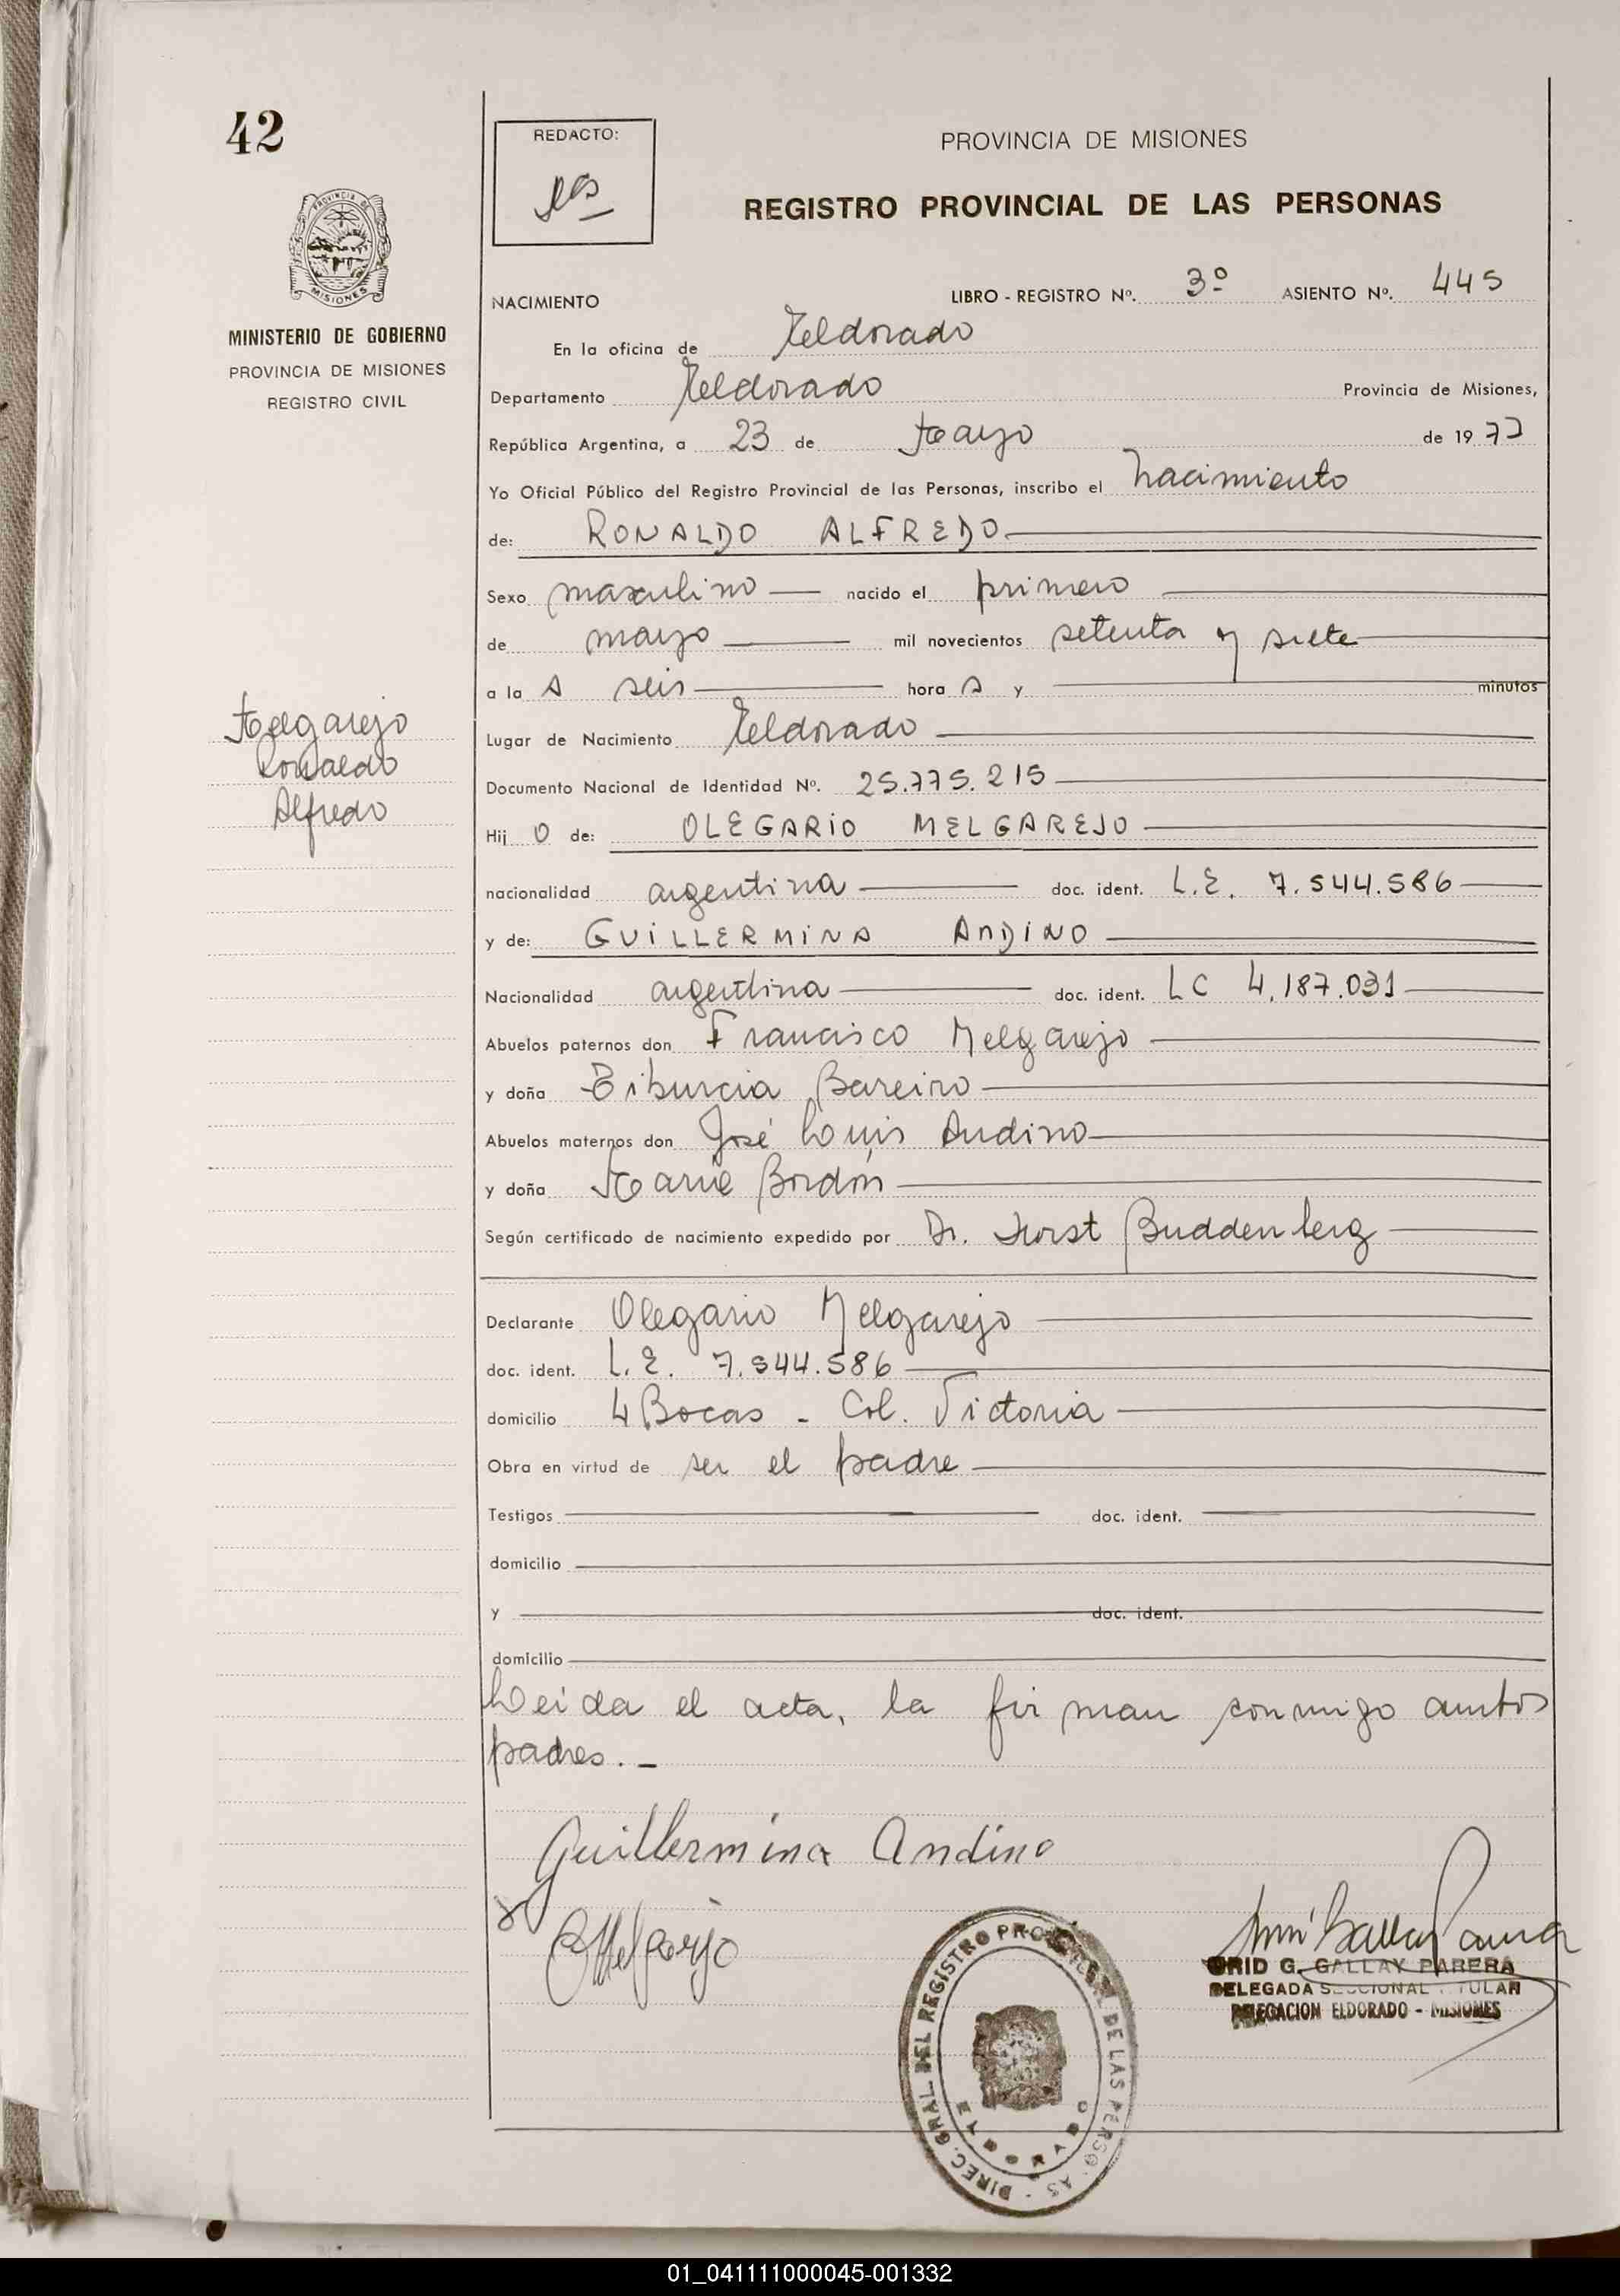 42
REDACTO:
PROVINCIA DE MISIONES
REGISTRO PROVINCIAL DE LAS PERSONAS
PROVINCIA DE
MISIONES
MINISTERIO DE GOBIERNO
PROVINCIA DE MISIONES
REGISTRO CIVIL
NACIMIENTO LIBRO - REGISTRO Nº. 3º ASIENTO Nº. 445
En la oficina de Eldorado
Departamento Eldorado Provincia de Misiones,
República Argentina, a 23 de Mayo de 1977
Yo Oficial Público del Registro Provincial de las Personas, inscribo el nacimiento
de: RONALDO ALFREDO
Sexo masculino nacido el primero
de marzo mil novecientos setenta y siete
a la s seis hora s y minutos
Melgarejo
Ronaldo
Alfredo
Lugar de Nacimiento Eldorado
Documento Nacional de Identidad Nº. 25.775.215
Hij o de: OLEGARIO MELGAREJO
nacionalidad argentina doc. ident. L.E. 7.544.586
y de: GUILLERMINA ANDINO
Nacionalidad argentina doc. ident. LC 4.187.031
Abuelos paternos don Francisco Melgarejo
y doña Tiburcia Bareiro
Abuelos maternos don José Louis Andino
y doña Marie Bordón
Según certificado de nacimiento expedido por Dr. Horst Buddenberg
Declarante Olegario Melgarejo
doc. ident. L.E. 7.544.586
domicilio 4 Bocas - Col. Victoria
Obra en virtud de ser el padre
Testigos doc. ident.
domicilio
y doc. ident.
domicilio
Leida el acta, la firman conmigo ambos
padres.-
Guillermina Andino
OMelgarejo
DIREC. GRAL DEL REGISTRO PROVINCIAL DE LAS PERSONAS
ELDORADO
GRID G. GALLAY PARERA
DELEGADA SECCIONAL TITULAR
DELEGACION ELDORADO - MISIONES
01_041111000045-001332